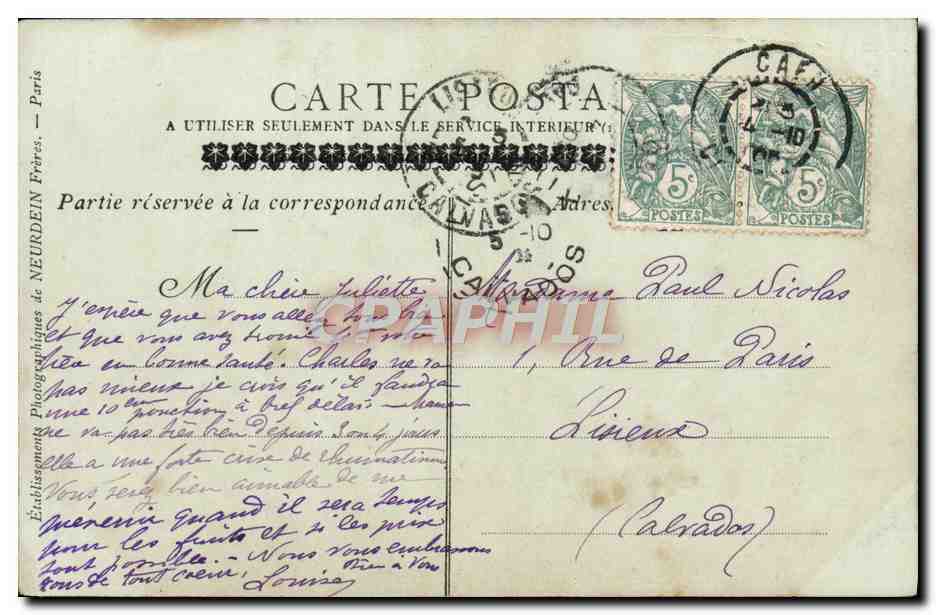 CARTE POSTA
A UTILISER SEULEMENT DANS LE SERVICE INTERIEUR
Partie réservée à la correspondance
Adres
Établissements Photographiques de NEURDEIN Frères. — Paris
CAEN
5 -10
CALVADOS
5c 5c
POSTES POSTES
CPAPHIL
Ma chère Juliette
J'espère que vous allez tous bien
et que vous avez trouvé
bien en bonne santé. Charles ne va
pas mieux je crois qu'il faudra
une 10eme ponction à bref délai - Maman
ne va pas très bien depuis 3 ou 4 jours
elle a une forte crise de rhumatisme
Vous serez bien aimable de me
prévenir quand il sera temps
pour les fruits et si les prix
sont possibles. - Nous vous embrassons
tous de tout coeur, Bien à vous
Louise
Madame Paul Nicolas
1, Rue de Paris
Lisieux
(Calvados)